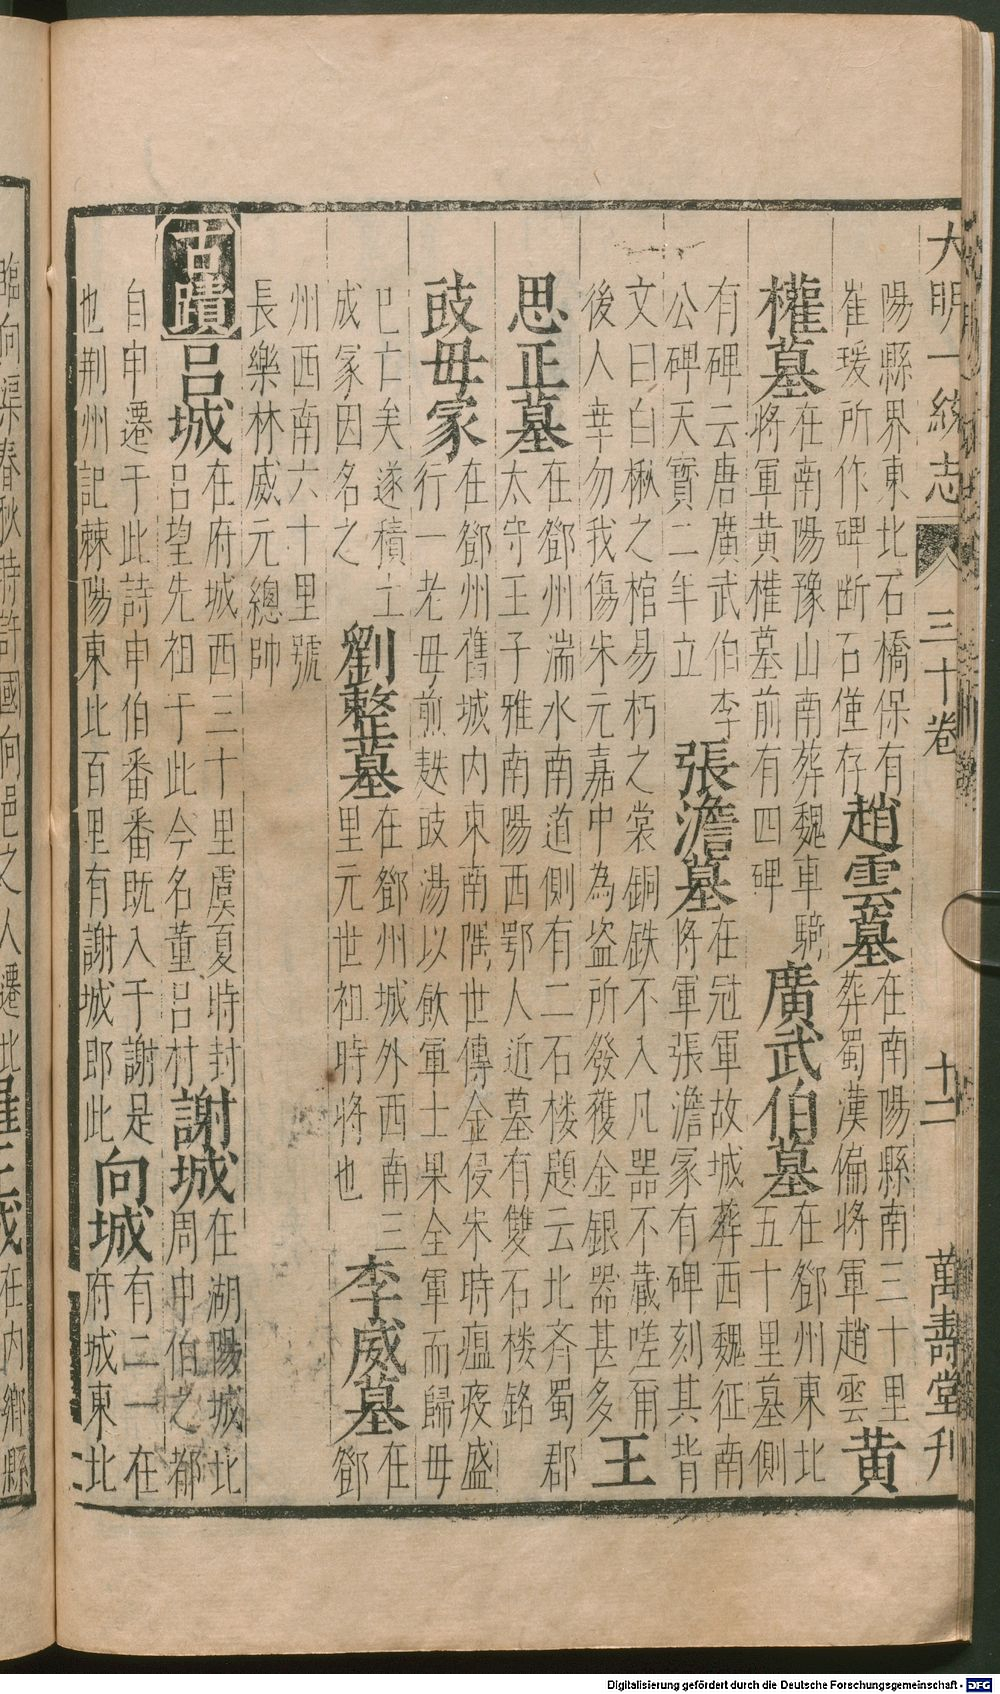 大明一統志 三十卷 十二 萬壽堂刊
陽縣界東北石橋保有
崔瑗所作碑断石僅存
趙雲墓
在南陽縣南三十里
葬蜀漢偏将軍趙雲
黄
權墓
在南陽豫山南葬魏車騎
将軍黄權墓前有四碑
廣武伯墓
在鄧州東北
五十里墓側
有碑云唐廣武伯李
公碑天寳二年立
張澹墓
在冠軍故城葬西魏征南
将軍張澹冢有碑刻其背
文曰白楸之棺易朽之裳銅鉄不入凡器不藏嗟爾
後人幸勿我傷宋元嘉中為盗所發獲金銀器甚多
王
思正墓
在鄧州湍水南道側有二石楼題云北斉蜀郡
太守王子雅南陽西鄂人近墓有雙石楼銘
豉母冢
在鄧州舊城内東南隅世傳金侵宋時瘟疫盛
行一老母煎麩豉湯以飲軍士果全軍而歸母
已亡矣遂積土
成冢因名之
劉整墓
在鄧州城外西南三
里元世祖時将也
李威墓
在
鄧
州西南六十里號
長樂林威元總帥
古蹟
吕城
在府城西三十里虞夏時封
吕望先祖于此今名董吕村
謝城
在湖陽城北
周申伯之都
自申遷于此詩申伯番番既入于謝是
也荆州記棘陽東北百里有謝城即此
向城
有二一在
府城東北
臨向渠春秋時許國向邑之人遷此
在内鄉縣
Digitalisierung gefördert durch die Deutsche Forschungsgemeinschaft - DFG